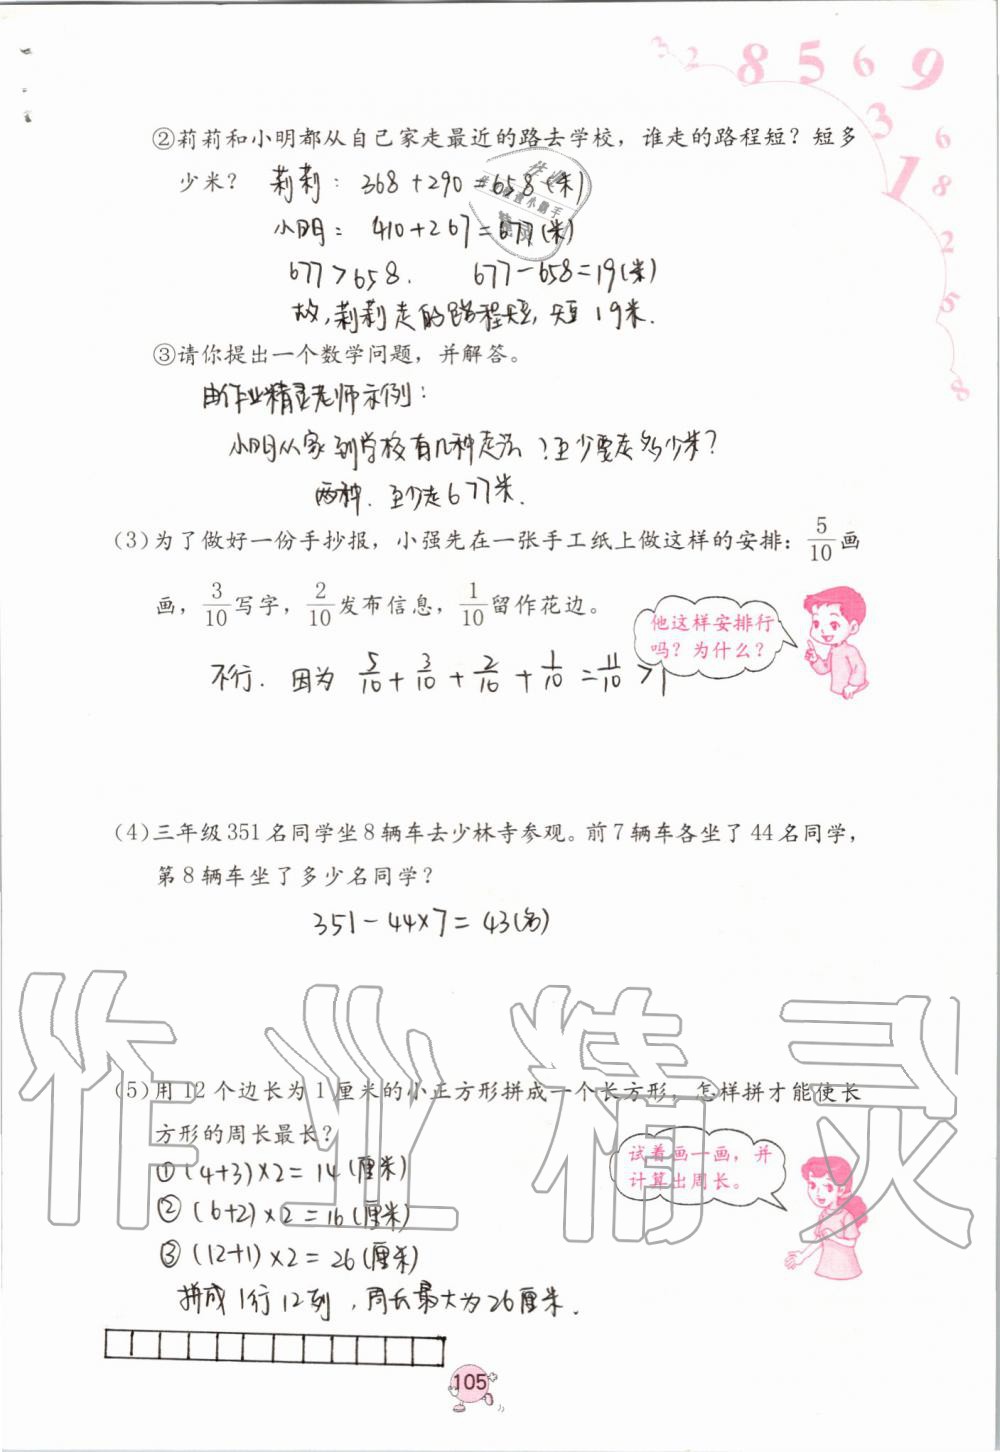 3 2 8 5 6 9
3 1 6 8 2 5 8
②莉莉和小明都从自己家走最近的路去学校，谁走的路程短？短多
少米？ 莉莉：368+290=658(米)
小明：410+267=677(米)
677>658. 677-658=19(米)
故,莉莉走的路程短,短19米.
③请你提出一个数学问题，并解答。
由作业精灵老师示例：
小明从家到学校有几种走法？至少要走多少米？
两种. 至少走677米.
(3)为了做好一份手抄报，小强先在一张手工纸上做这样的安排：5/10画
画，3/10写字，2/10发布信息，1/10留作花边。
他这样安排行
吗？为什么？
不行. 因为 5/10+3/10+2/10+1/10=11/10>1
(4)三年级351名同学坐8辆车去少林寺参观。前7辆车各坐了44名同学，
第8辆车坐了多少名同学？
351-44×7=43(名)
作业精灵
(5)用12个边长为1厘米的小正方形拼成一个长方形，怎样拼才能使长
方形的周长最长？
试着画一画，并
计算出周长。
①(4+3)×2=14(厘米)
②(6+2)×2=16(厘米)
③(12+1)×2=26(厘米)
拼成1行12列,周长最大为26厘米.
105